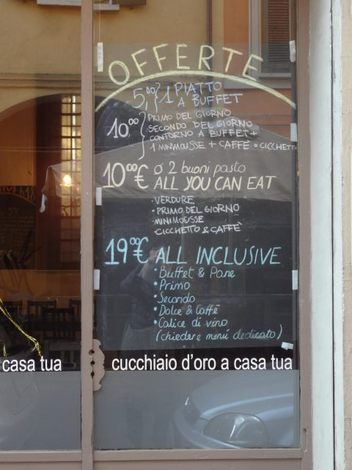 OFFERTE
5,00 } 1 PIATTO
A BUFFET
10.00 { PRIMO DEL GIORNO
SECONDO DEL GIORNO
CONTORNO A BUFFET +
1 MINIMOUSSE + CAFFÈ + CICCHETTO
10.00€ o 2 buoni pasto
ALL YOU CAN EAT
• VERDURE
• PRIMO DEL GIORNO
• MINIMOUSSE
• CICCHETTO & CAFFÈ
19.00€ ALL INCLUSIVE
• Buffet & Pane
• Primo
• Secondo
• Dolce & Caffè
• Calice di vino
(chiedere menù dedicato)
casa tua cucchiaio d'oro a casa tua